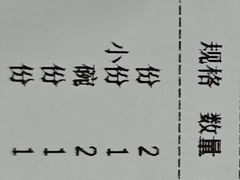 规格 数量
份 2
小份 1
碗 2
份 1
份 1